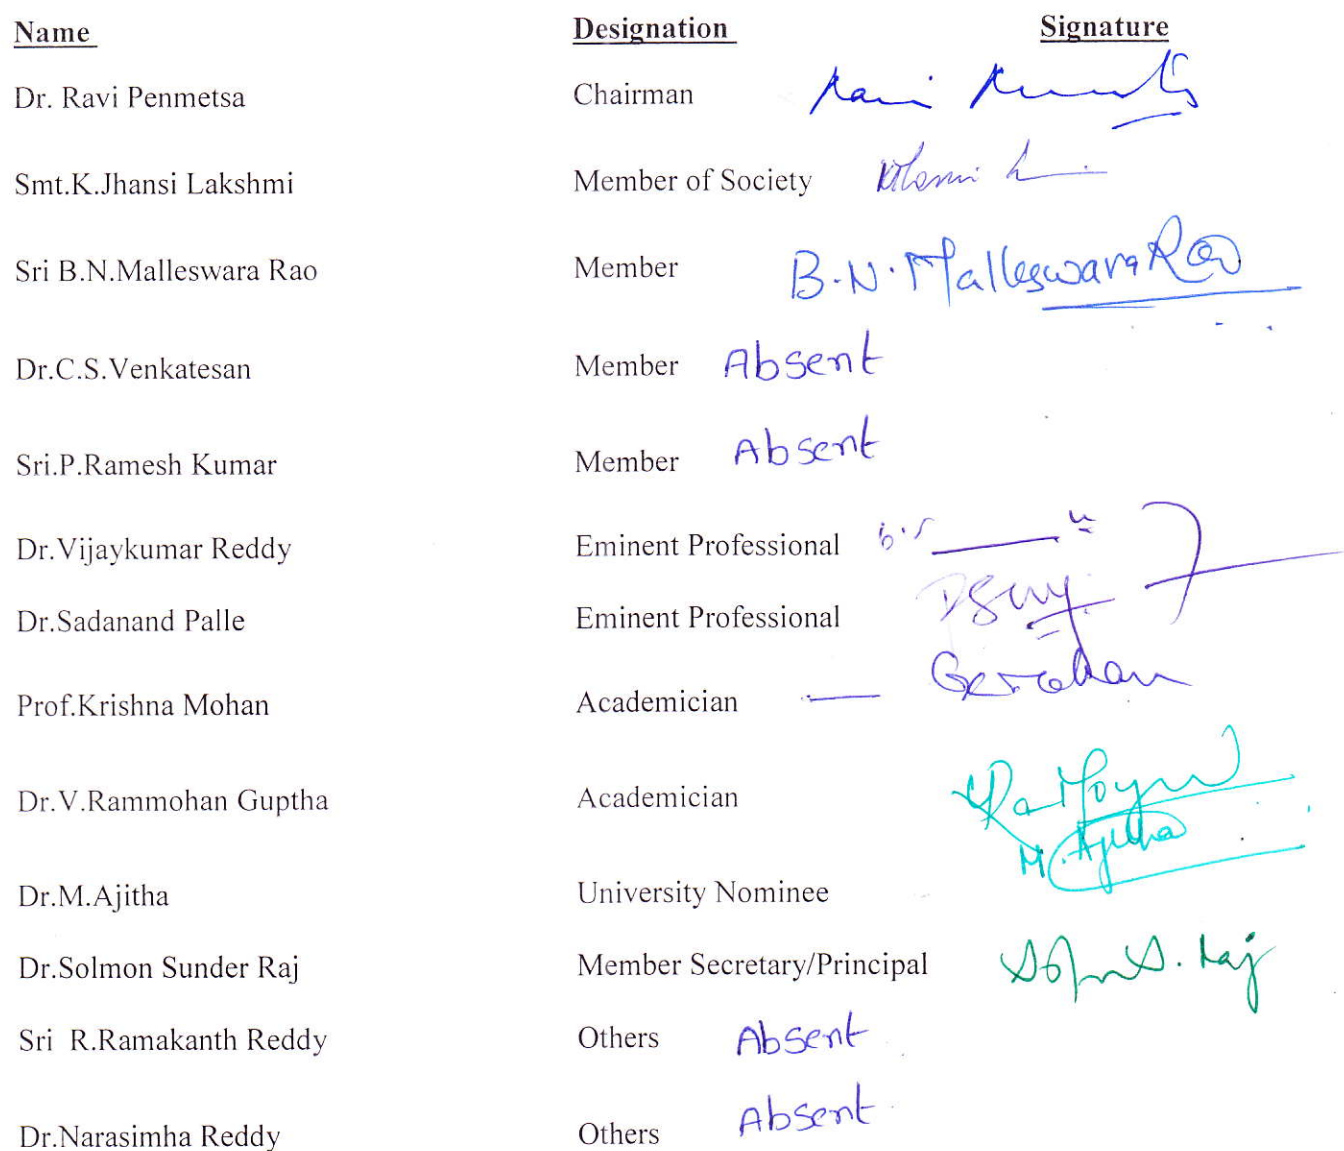 Name Designation Signature
Dr. Ravi Penmetsa Chairman
Smt.K.Jhansi Lakshmi Member of Society
Sri B.N.Malleswara Rao Member B.N.Malleswara Rao
Dr.C.S.Venkatesan Member Absent
Sri.P.Ramesh Kumar Member Absent
Dr.Vijaykumar Reddy Eminent Professional
Dr.Sadanand Palle Eminent Professional
Prof.Krishna Mohan Academician
Dr.V.Rammohan Guptha Academician
Dr.M.Ajitha University Nominee M.Ajitha
Dr.Solmon Sunder Raj Member Secretary/Principal
Sri R.Ramakanth Reddy Others Absent
Dr.Narasimha Reddy Others Absent